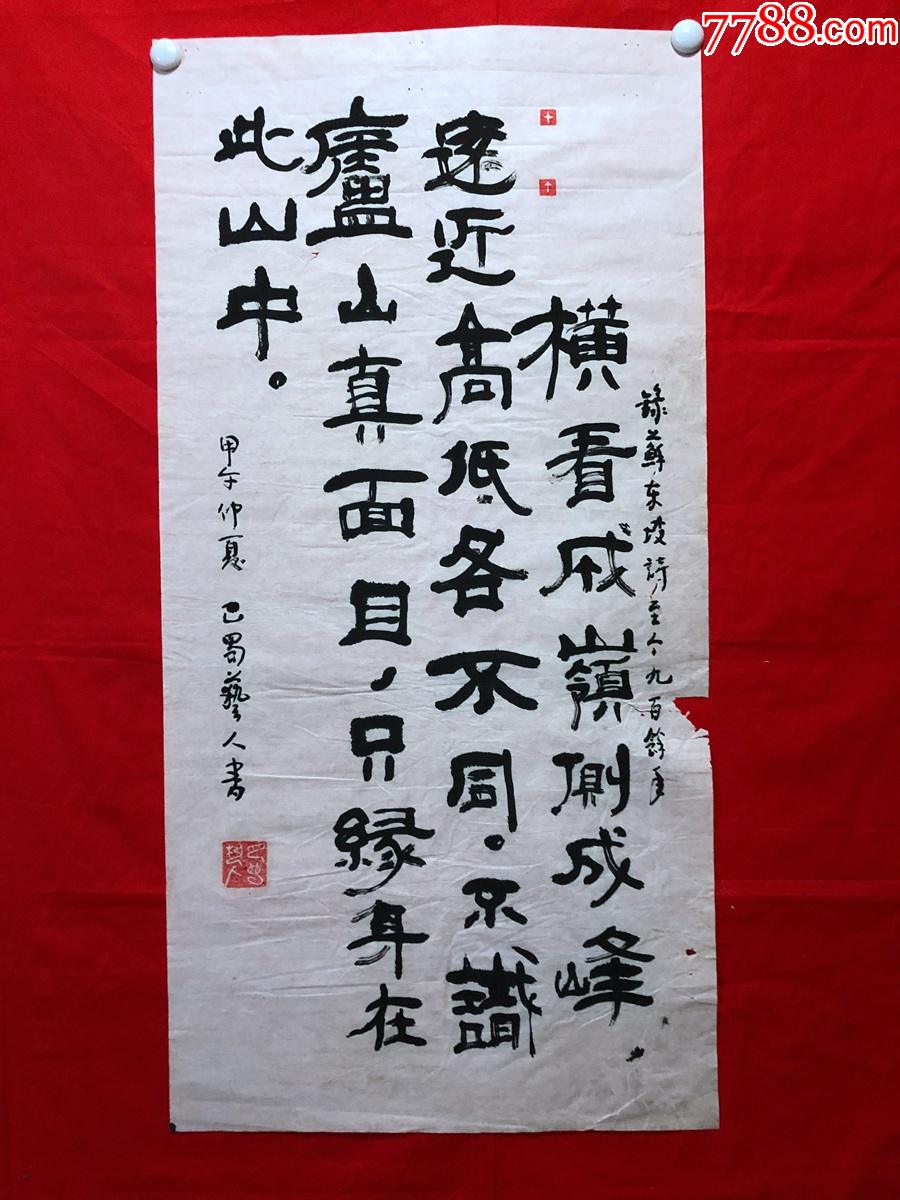 7788.com
錄蘇东坡詩至今九百餘年
橫看成嶺側成峰，
遠近高低各不同。不識
廬山真面目，只緣身在
此山中。
甲午仲夏 巴蜀藝人書